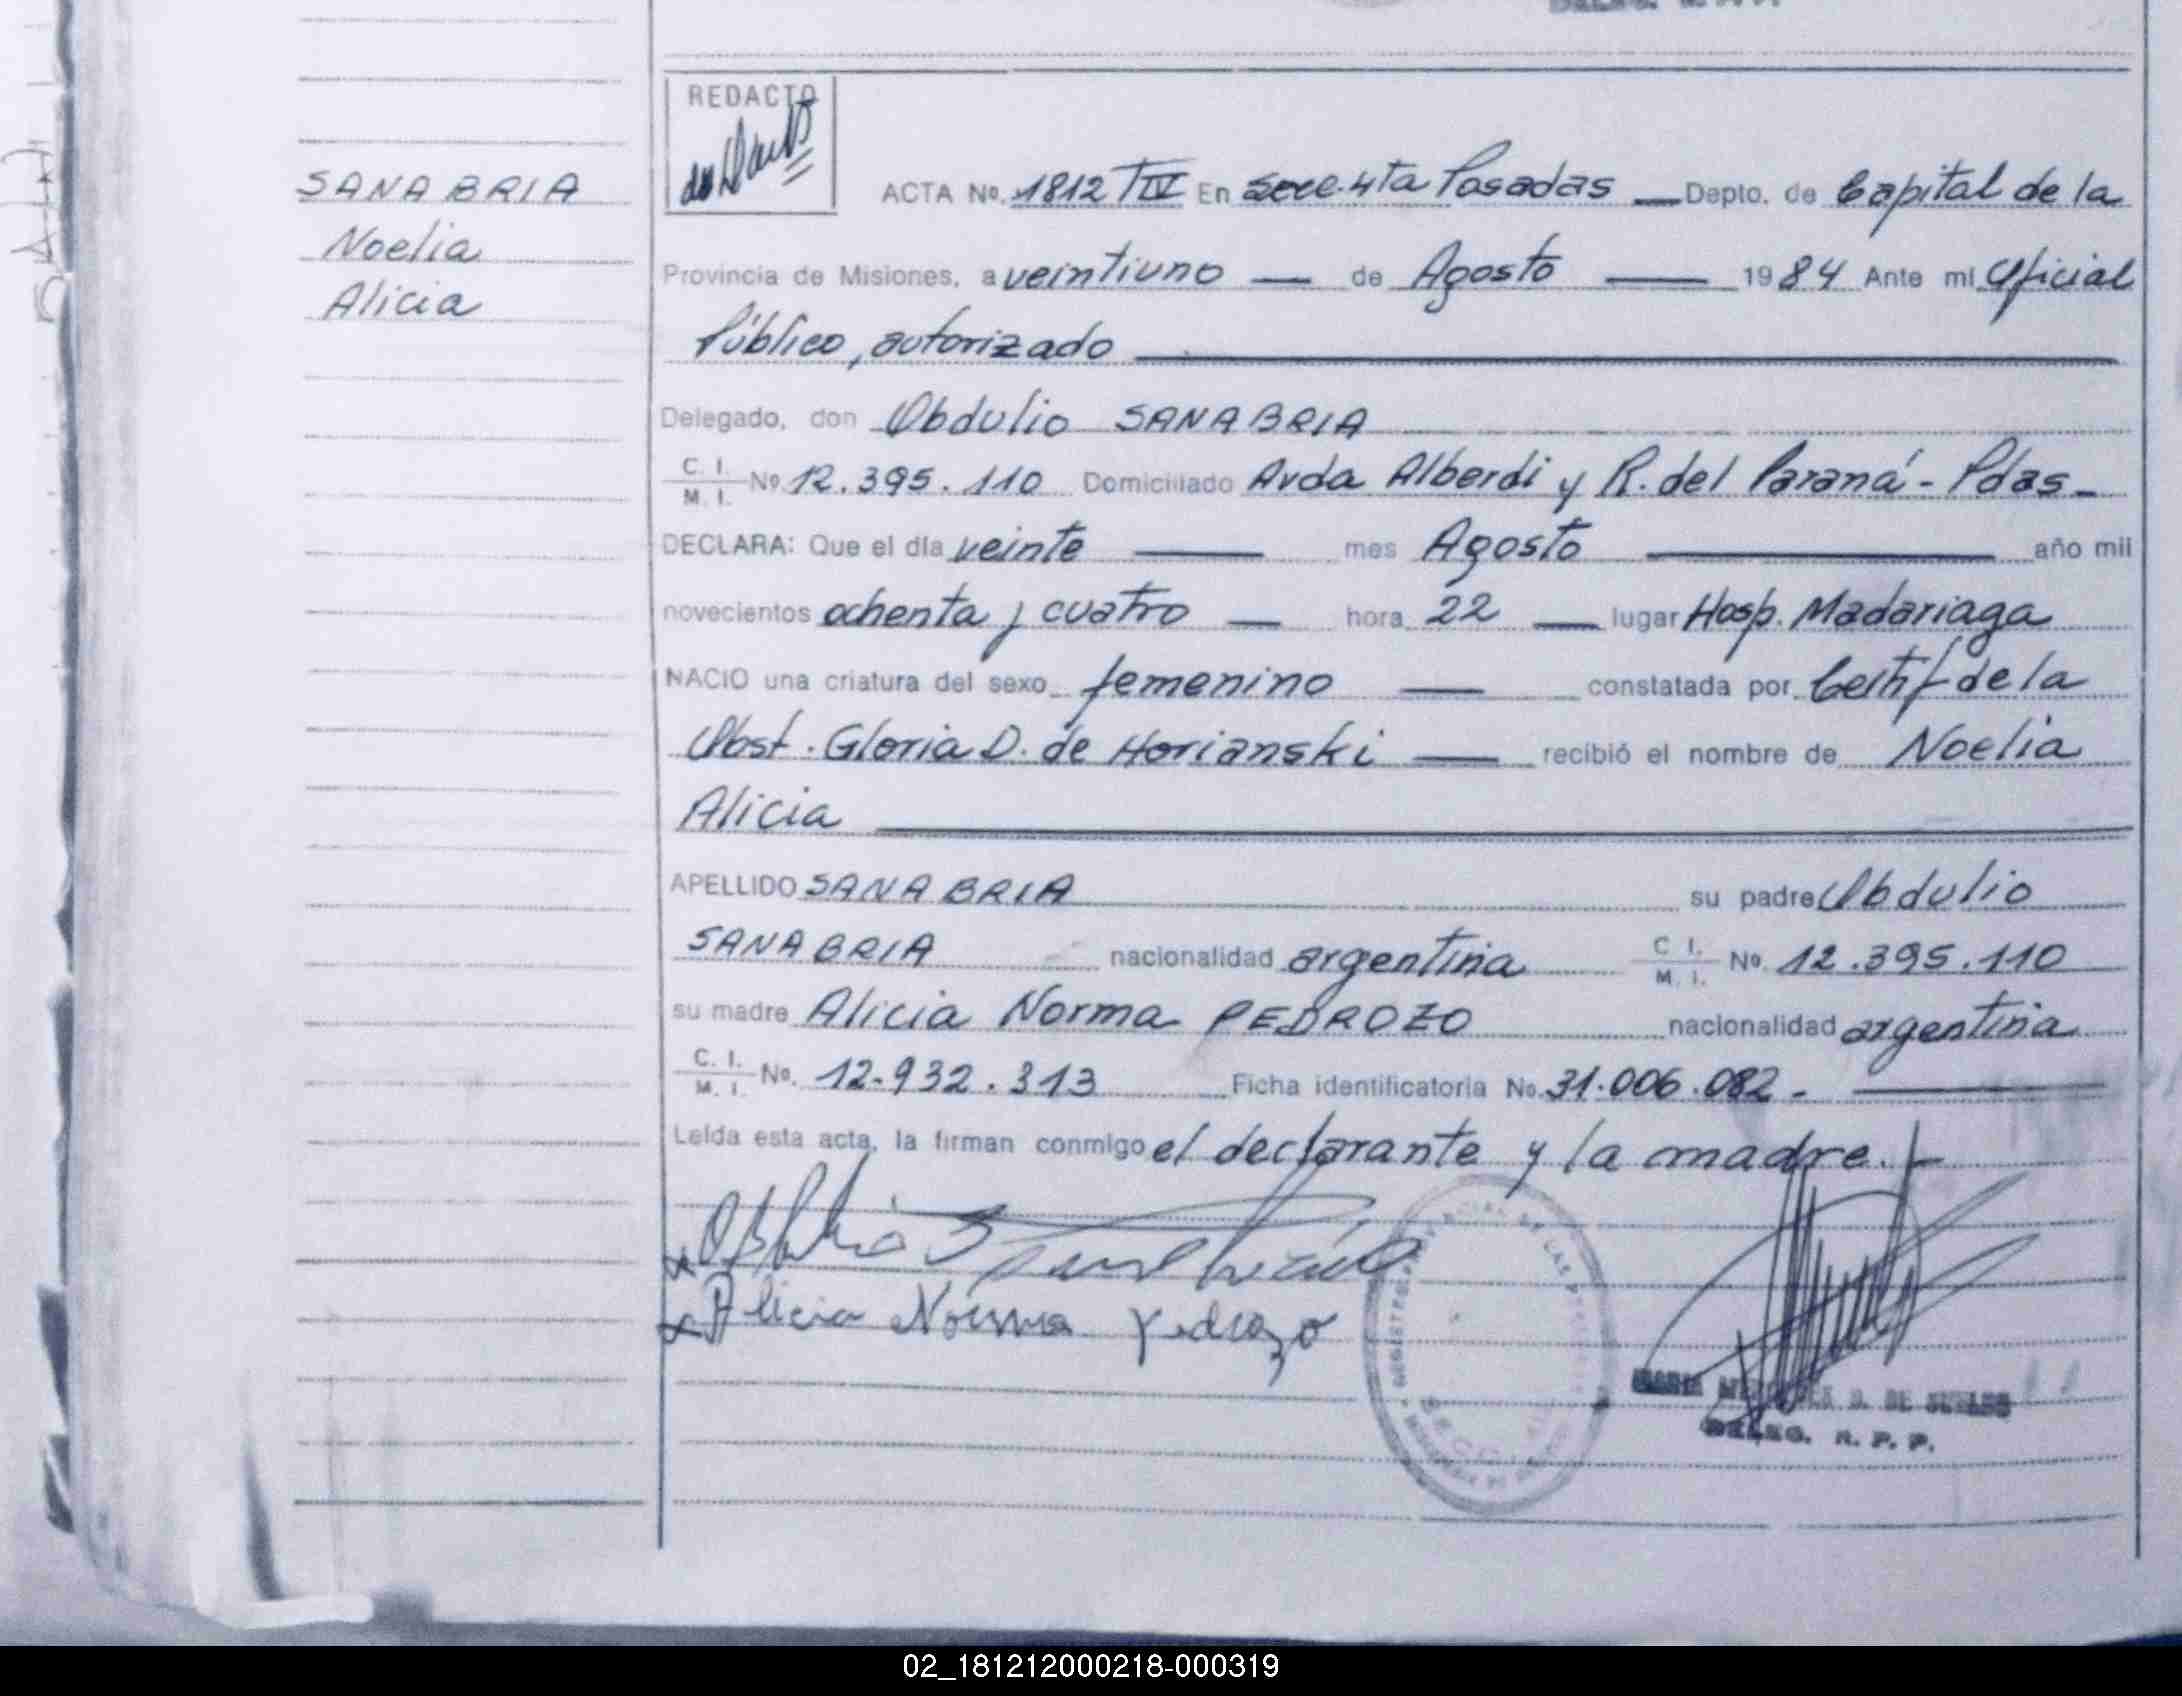 SANABRIA
Noelia
Alicia
REDACTO
ACTA No. 1812 TIV En Secc. 4ta Posadas Depto. de Capital de la
Provincia de Misiones, a veintiuno de Agosto 1984 Ante mi Oficial
Público, autorizado
Delegado, don Obdulio SANABRIA
C. I. / M. I. No 12.395.110 Domiciliado Avda Alberdi y R. del Paraná - Pdas -
DECLARA: Que el día veinte mes Agosto año mil
novecientos ochenta y cuatro hora 22 lugar Hosp. Madariaga
NACIO una criatura del sexo femenino constatada por Certif de la
Obst. Gloria D. de Horianski recibió el nombre de Noelia
Alicia
APELLIDO SANABRIA su padre Obdulio
SANABRIA nacionalidad argentina C I. / M. I. No. 12.395.110
su madre Alicia Norma PEDROZO nacionalidad argentina
C. I. / M. I. No. 12.932.313 Ficha identificatoria No. 31.006.082 -
Leída esta acta, la firman conmigo el declarante y la madre. -
Alicia Norma Pedrozo
DE
DELEG. R. P. P.
02_181212000218-000319